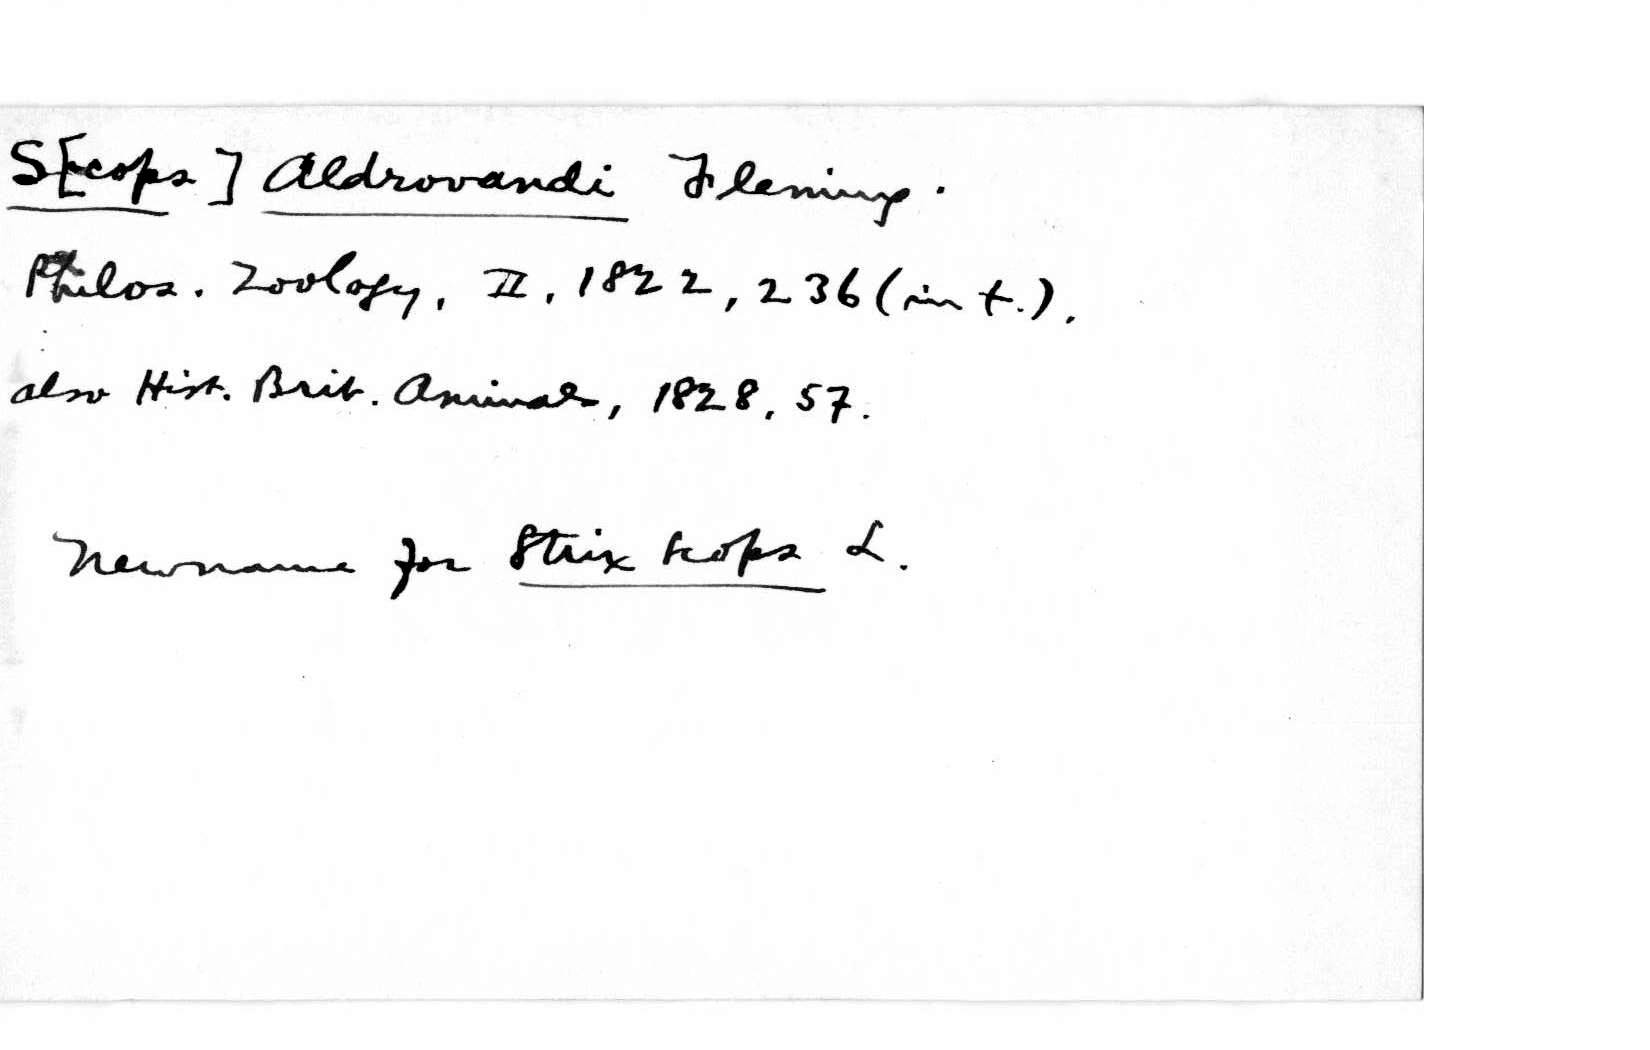 S[cops] Aldrovandi Fleming.
Philos. Zoology, II, 1822, 236 (in t.).
also Hist. Brit. Animals, 1828, 57.
New name for Strix scops L.